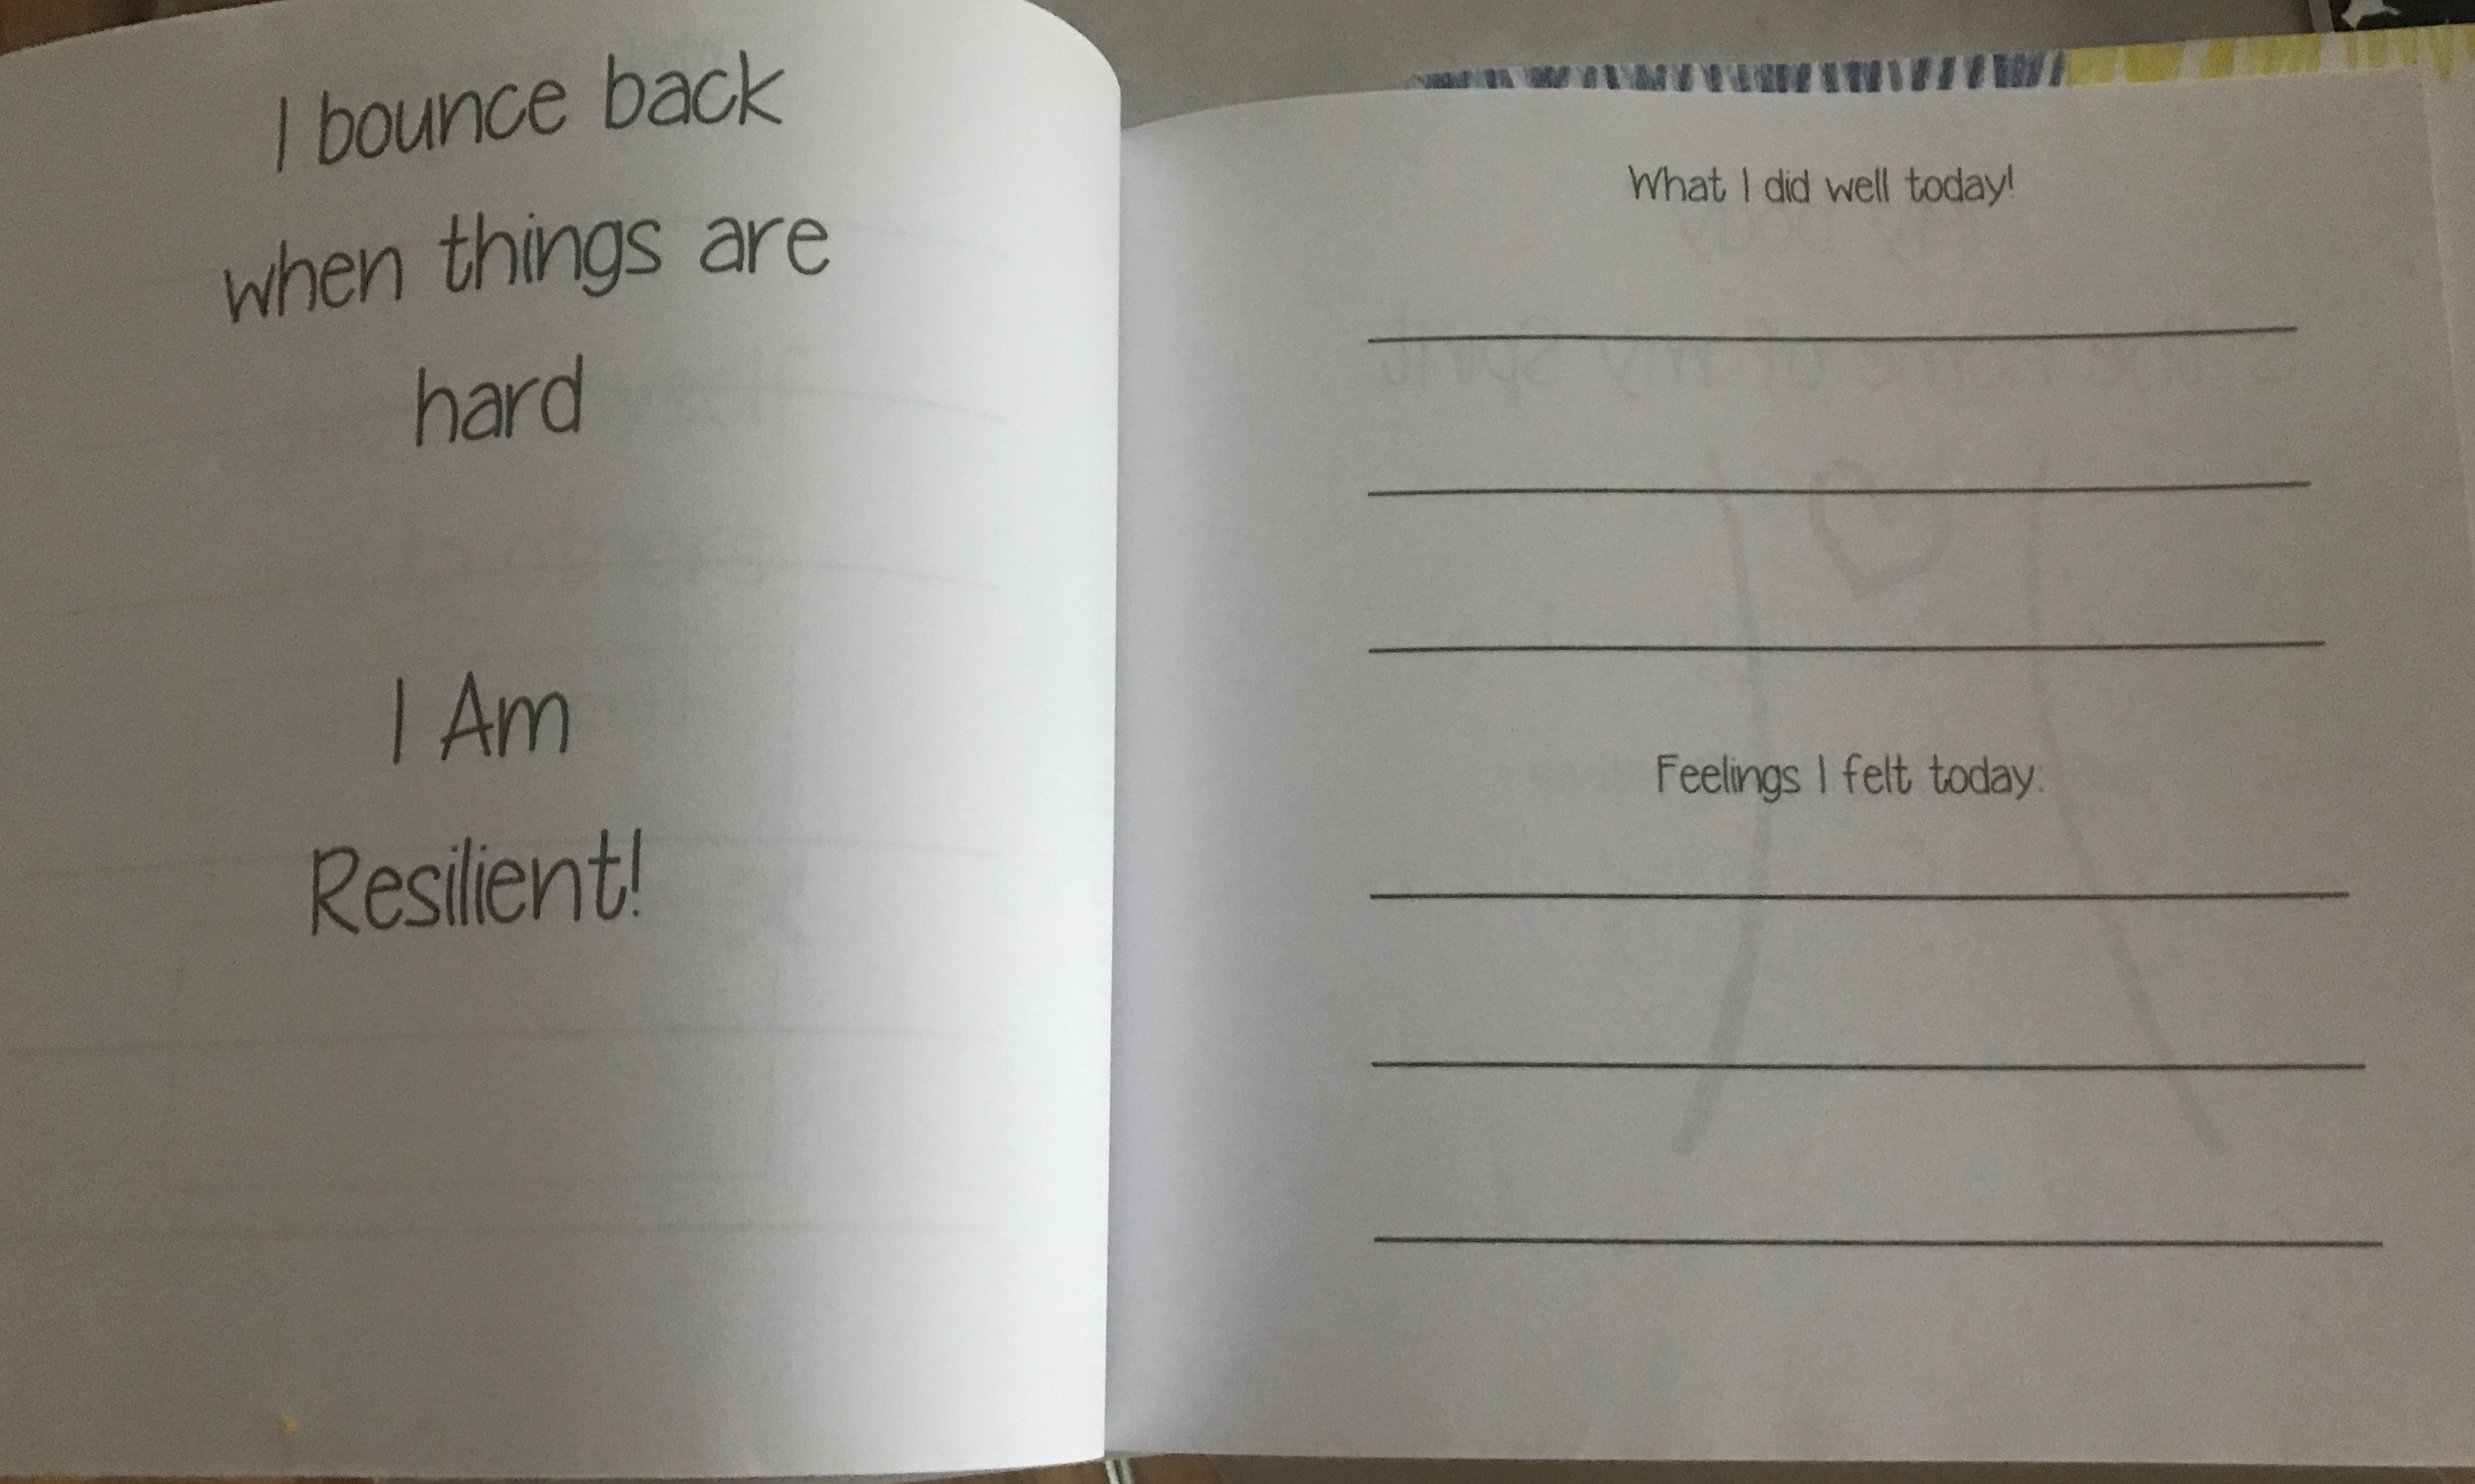 I bounce back
when things are
hard
I Am
Resilient!
What I did well today!
Feelings I felt today: